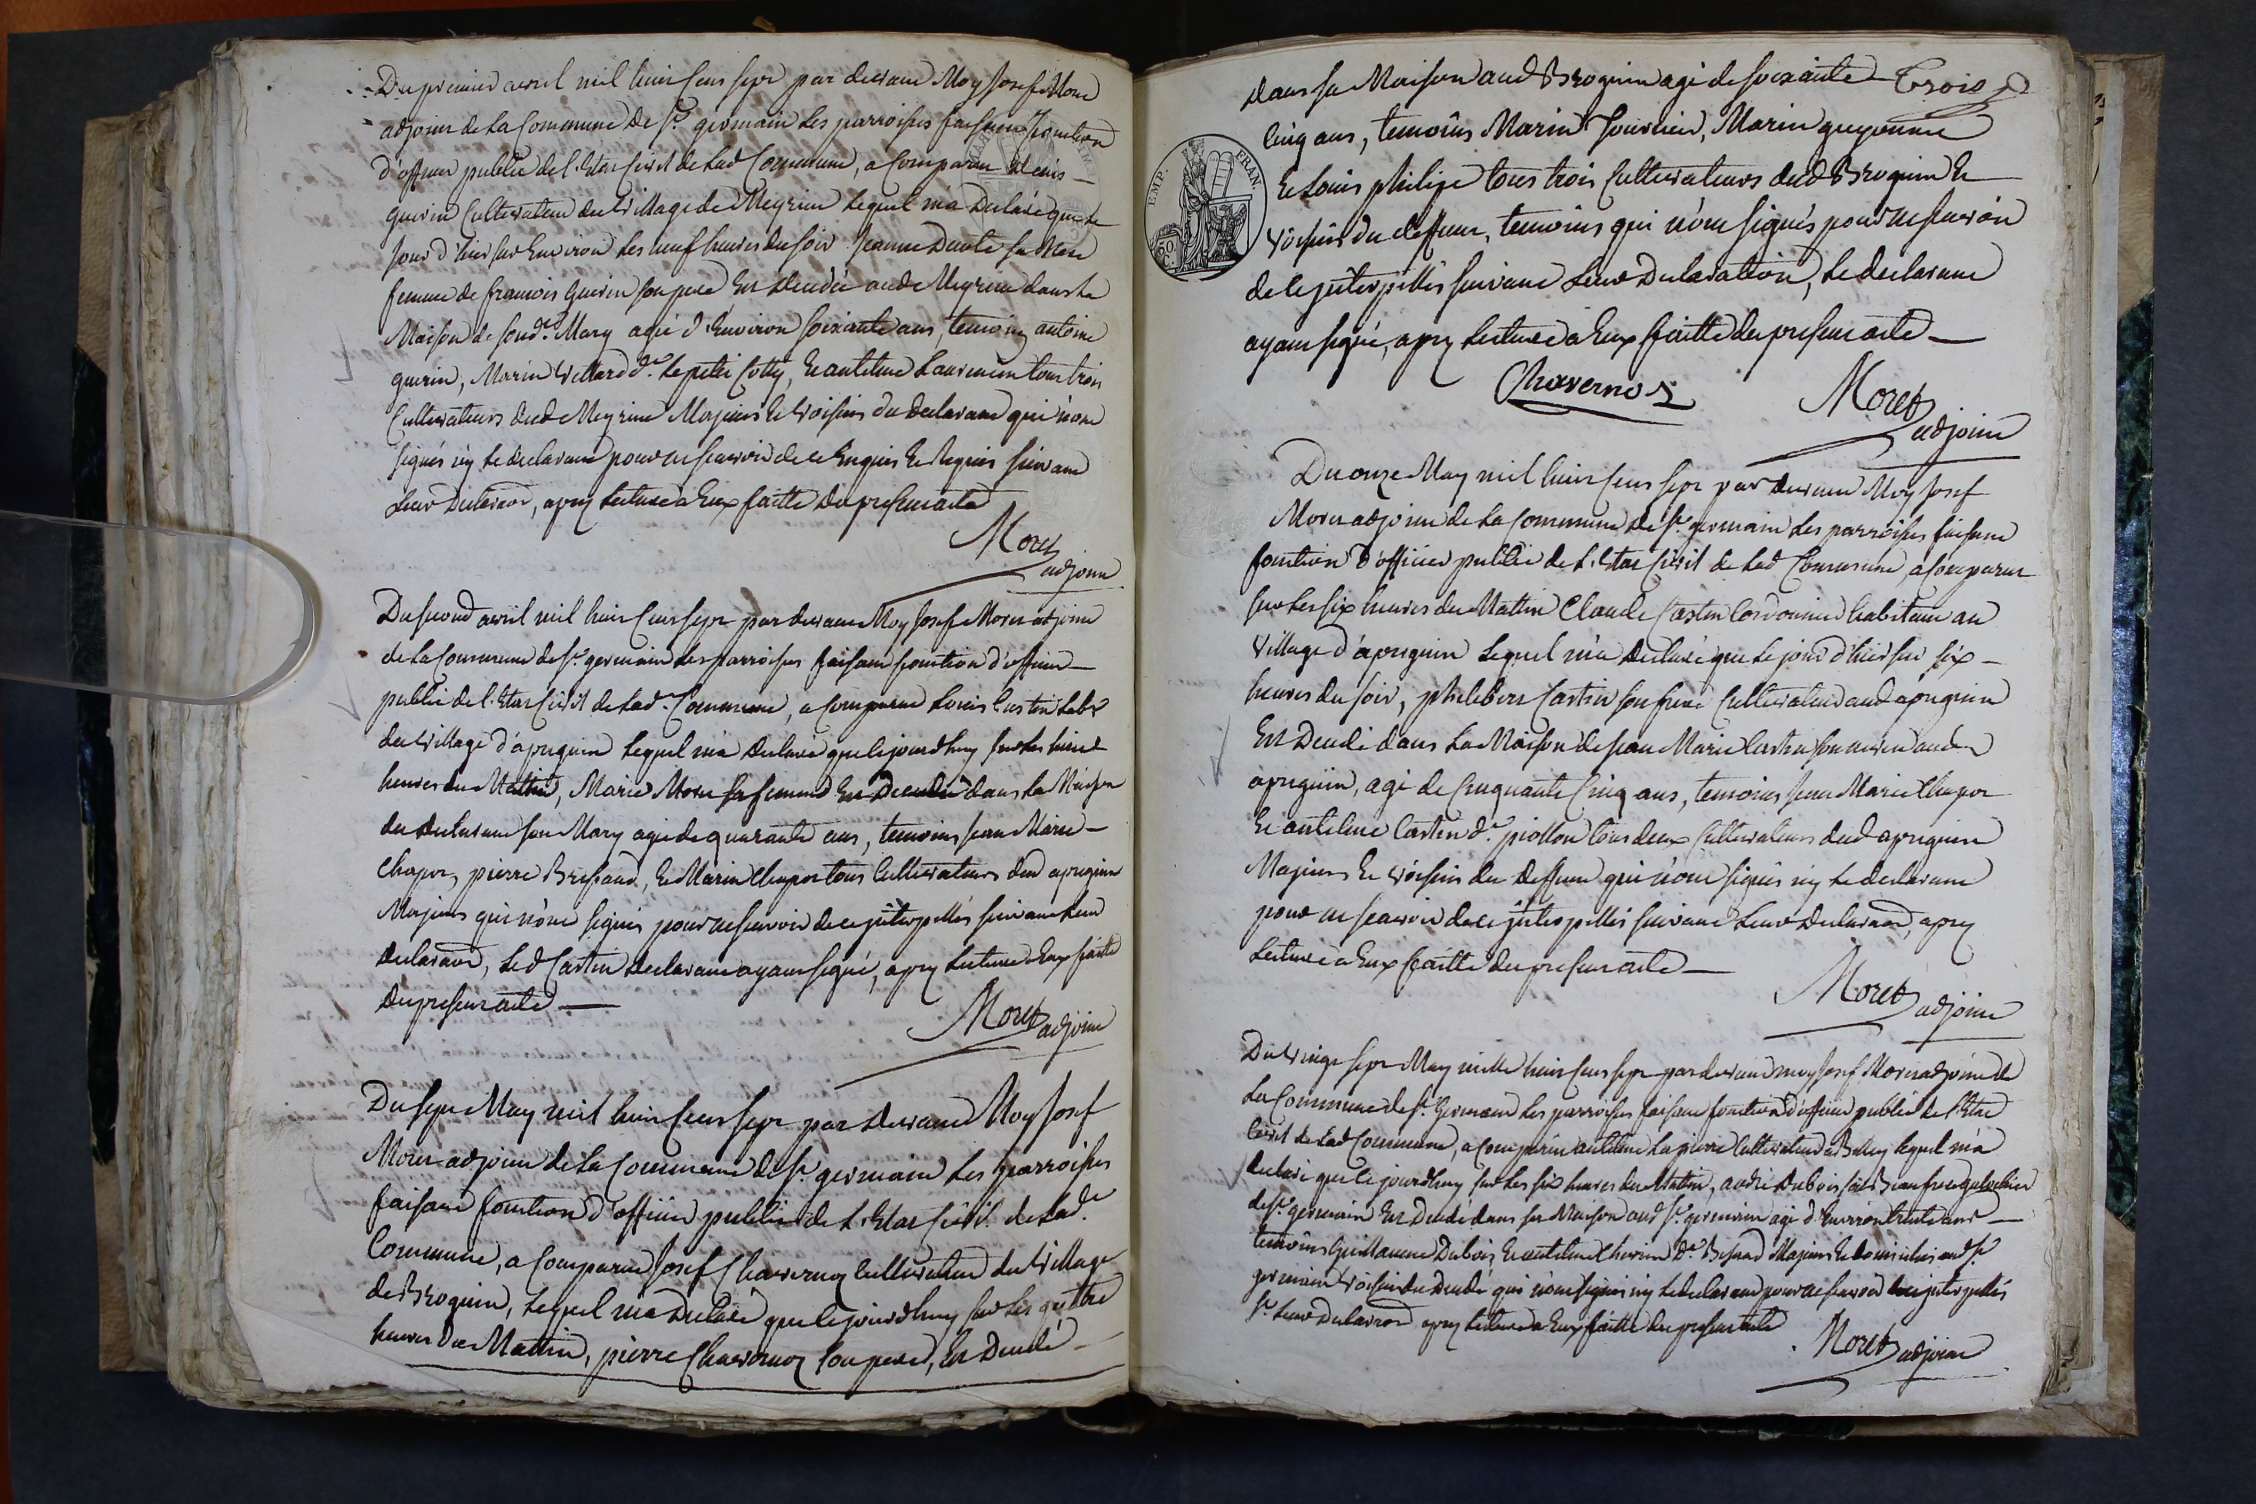 Du premier avril mil huit cens sept par devant Moy Josef Moret
adjoint de la Commune de St. germain les parroisses faisant fonction
d'officier public de l'Etat Civil de lad Commune, a Comparu Denis
guerin Cultivateur du village de Meyrieu lequel m'a Declaré que le
jour d'hier sur Environ les neuf heures du soir Jeanne Dente sa Mere
femme de francois Guerin son pere Est decedée aud Meyrieu dans la
Maison de sond. Mary agée d'Environ soixante ans, temoins antoine
guerin, Marin Villard dt. le petit Cotty, Et antelme Laurencin tous trois
Cultivateurs dud Meyrieu Majeurs Et voisins du declarant qui n'ont
signés ny le declarant pour ne scavoir de ce Enquis Et Requis suivant
Leur Declaraon, apres lecture a Eux faitte Du present acte
Moret
adjoint
Du second avril mil huit cens sept par devant Moy Josef Moret adjoint
de la Commune de St. germain les parroisses faisant fonction d'officier
public de l'Etat Civil de lad. Commune, a Comparu Louis Castin Labr
du village d'apregnin lequel m'a declaré que le jourdhuy sur les huit
heures du Mattin, Marie Moret sa femme Est Decedée dans la Maison
du declarant son Mary agée de quarante ans, temoins Jean Marie
Chapot, pierre Bressand, Et Marin Chapot tous Cultivateurs dud apregnin
Majeurs qui n'ont signés pour ne scavoir de ce interpellés suivant leur
declaraon, led Castin declarant ayant signé, apres lecture a Eux faitte
du present acte
Moret adjoint
Du sept May mil huit Cens sept par devant Moy Josef
Moret adjoint de la Commune de St. germain les parroisses
faisant fonction d'officier public de l'Etat Civil de lad.
Commune, a Comparu Josef Chavernoz Cultivateur du village
de Brognin, lequel m'a Declaré que le jourdhuy sur les quattre
heures du Mattin, pierre Chavernoz son pere, Est Decedé
dans sa Maison aud Brognin agé de soixante Trois
Cinq ans, temoins Marin fournier, Marin guyonnet
Et Louis philipe tous trois Cultivateurs dud Brognin Et
voisins du deffunt, temoins qui n'ont signés pour ne scavoir
de ce interpellés suivant leur Declaration, le declarant
ayant signé, apres lecture a Eux faitte du present acte
EMP. FRAN.
50 C.
Chavernoz
Moret
adjoint
Du onze May mil huit cens sept par devant Moy Josef
Moret adjoint de la Commune de St. germain les parroisses faisant
fonction d'officier public de l'Etat Civil de lad Commune, a Comparu
sur les six heures du Mattin Claude Castin Cordonnier habitant au
village d'apregnin lequel m'a declaré que le jour d'hier sur six
heures du soir, philebert Castin son frere Cultivateur aud apregnin
Est Decedé dans la Maison de Jean Marie Castin son neveu aud
apregnin, agé de Cinquante Cinq ans, temoins Jean Marie Chapot
Et antelme Castin dt. piollon tous deux Cultivateurs dud apregnin
Majeurs Et voisins du deffunt qui n'ont signés ny le declarant
pour ne scavoir de ce interpellés suivant Leur Declaraon, apres
Lecture a Eux faitte du present acte
Moret adjoint
Du vingt sept May mille huit cens sept par devant moy Josef Moret adjoint de
la Commune de St. Germain les parroisses faisant fonction d'officier public de l'Etat
Civil de lad Commune, a Comparu antelme Lapierre Cultivateur a Belley lequel m'a
declaré que le jourdhuy sur les six heures du Matin, andré Dubois son Beau frere
de St. germain Est Decedé dans sa Maison aud St. germain agé d'Environ trente ans
temoins Guillaume Dubois, Et antelme dt. Majeurs Et domiciliés aud St
germain voisins du Decedé qui n'ont signés ny le declarant pour ne scavoir de ce interpellés
St. leur Declaraon apres lecture a Eux faitte du present acte
Moret adjoint